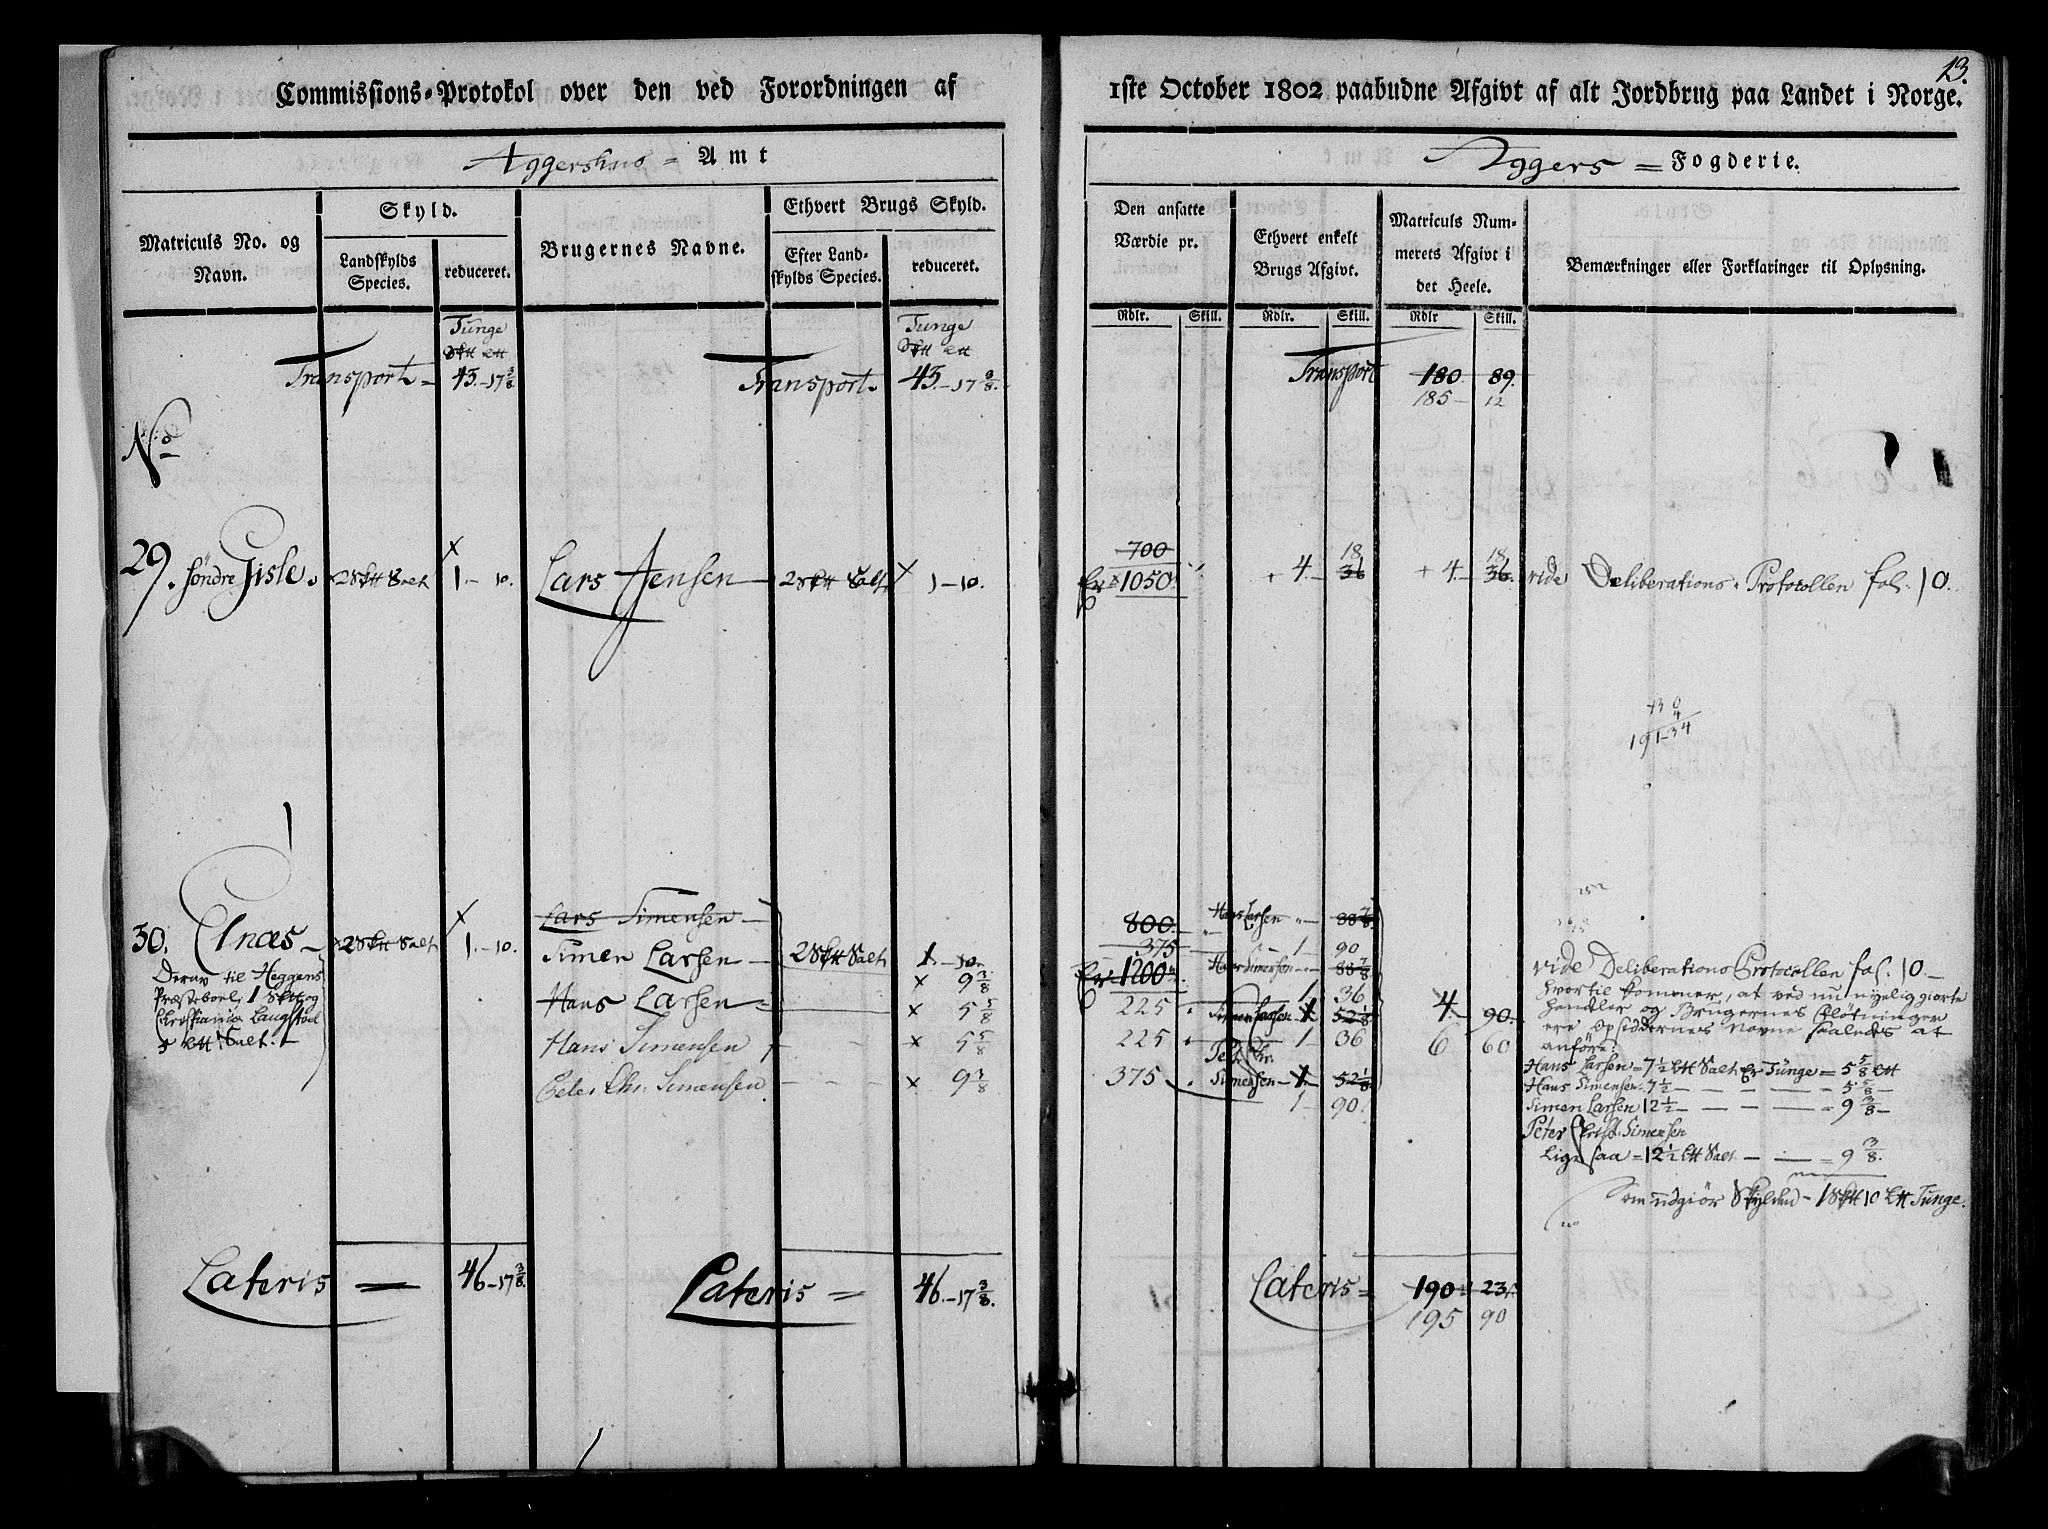 13.
Commissions-Protokol over den ved Forordningen af
Aggershus = Amt
Matriculs No. og Navn.
Skyld.
Landskylds Species.
reduceret.
Brugernes Navne.
Ethvert Brugs Skyld.
Efter Landskylds Species.
reduceret.
Tunge
Tunge
Transport = 45 - 17 3/8
Transport. 45 - 17 3/8.
No
29. søndre Gisle. 2 Sktt Salt 1 - 10. Lars Jensen 2 Sktt Salt 1 - 10.
30. Elnæs 2 Sktt Salt 1. - 10.
Derav til Heggens
Præsteboel 1 Sktt og
Christiania Laugstoel
Ltt Salt.
Lars Simensen
Simen Larsen 2 Sktt Salt 1. - 10
9 3/8
Hans Larsen 5 5/8
Hans Simensen 5 5/8
Peter Chr. Simensen. 9 3/8
Lateris = 46 - 17 3/8.
Lateris = 46. - 17 3/8.
1ste October 1802 paabudne Afgivt af alt Jordbrug paa Landet i Norge.
Aggers = Fogderie.
Den ansatte Værdie pr.
Ethvert enkelt Brugs Afgivt.
Matriculs Nummerets Afgivt i det Heele.
Bemærkninger eller Forklaringer til Oplysning.
Rdlr. Skill. Rdlr. Skill. Rdlr Skill.
Transport 180. 89.
185 - 12
700 18 18
1050 4 - 36 4 - 36. vide Deliberations Protocollen fol. 10.
191-34
800 Hans Larsen 88 7/8
375 1 - 90
1200 Hans Simensen 88 7/8
1 36
225 Simen Larsen 1 52 1/8 4 - 90.
225 1 - 36 6 60
Pet. Chr.
375 Simensen - 1 - 52 1/8
1 - 90.
vide Deliberations Protocollen fol. 10 -
hvortil kommer, at ved nu nyelig giorte
handler og Brugernes fløtninger
ere opsiddernes Navne saaledes at
anføre:
Hans Larsen = 7 1/2 Ltt Salt Er Tunge = 5 5/8 Ltt
Hans Simensen 7 1/2 - 5 5/8 -
Simen Larsen 12 1/2 - 9 3/8 -
Peter Christ. Simensen
ligesaa = 12 1/2 Ltt Salt - = 9 3/8.
Som udgiør Skylden - 1 Sktt 10 Ltt Tunge.
Lateris = 190 23
195 90